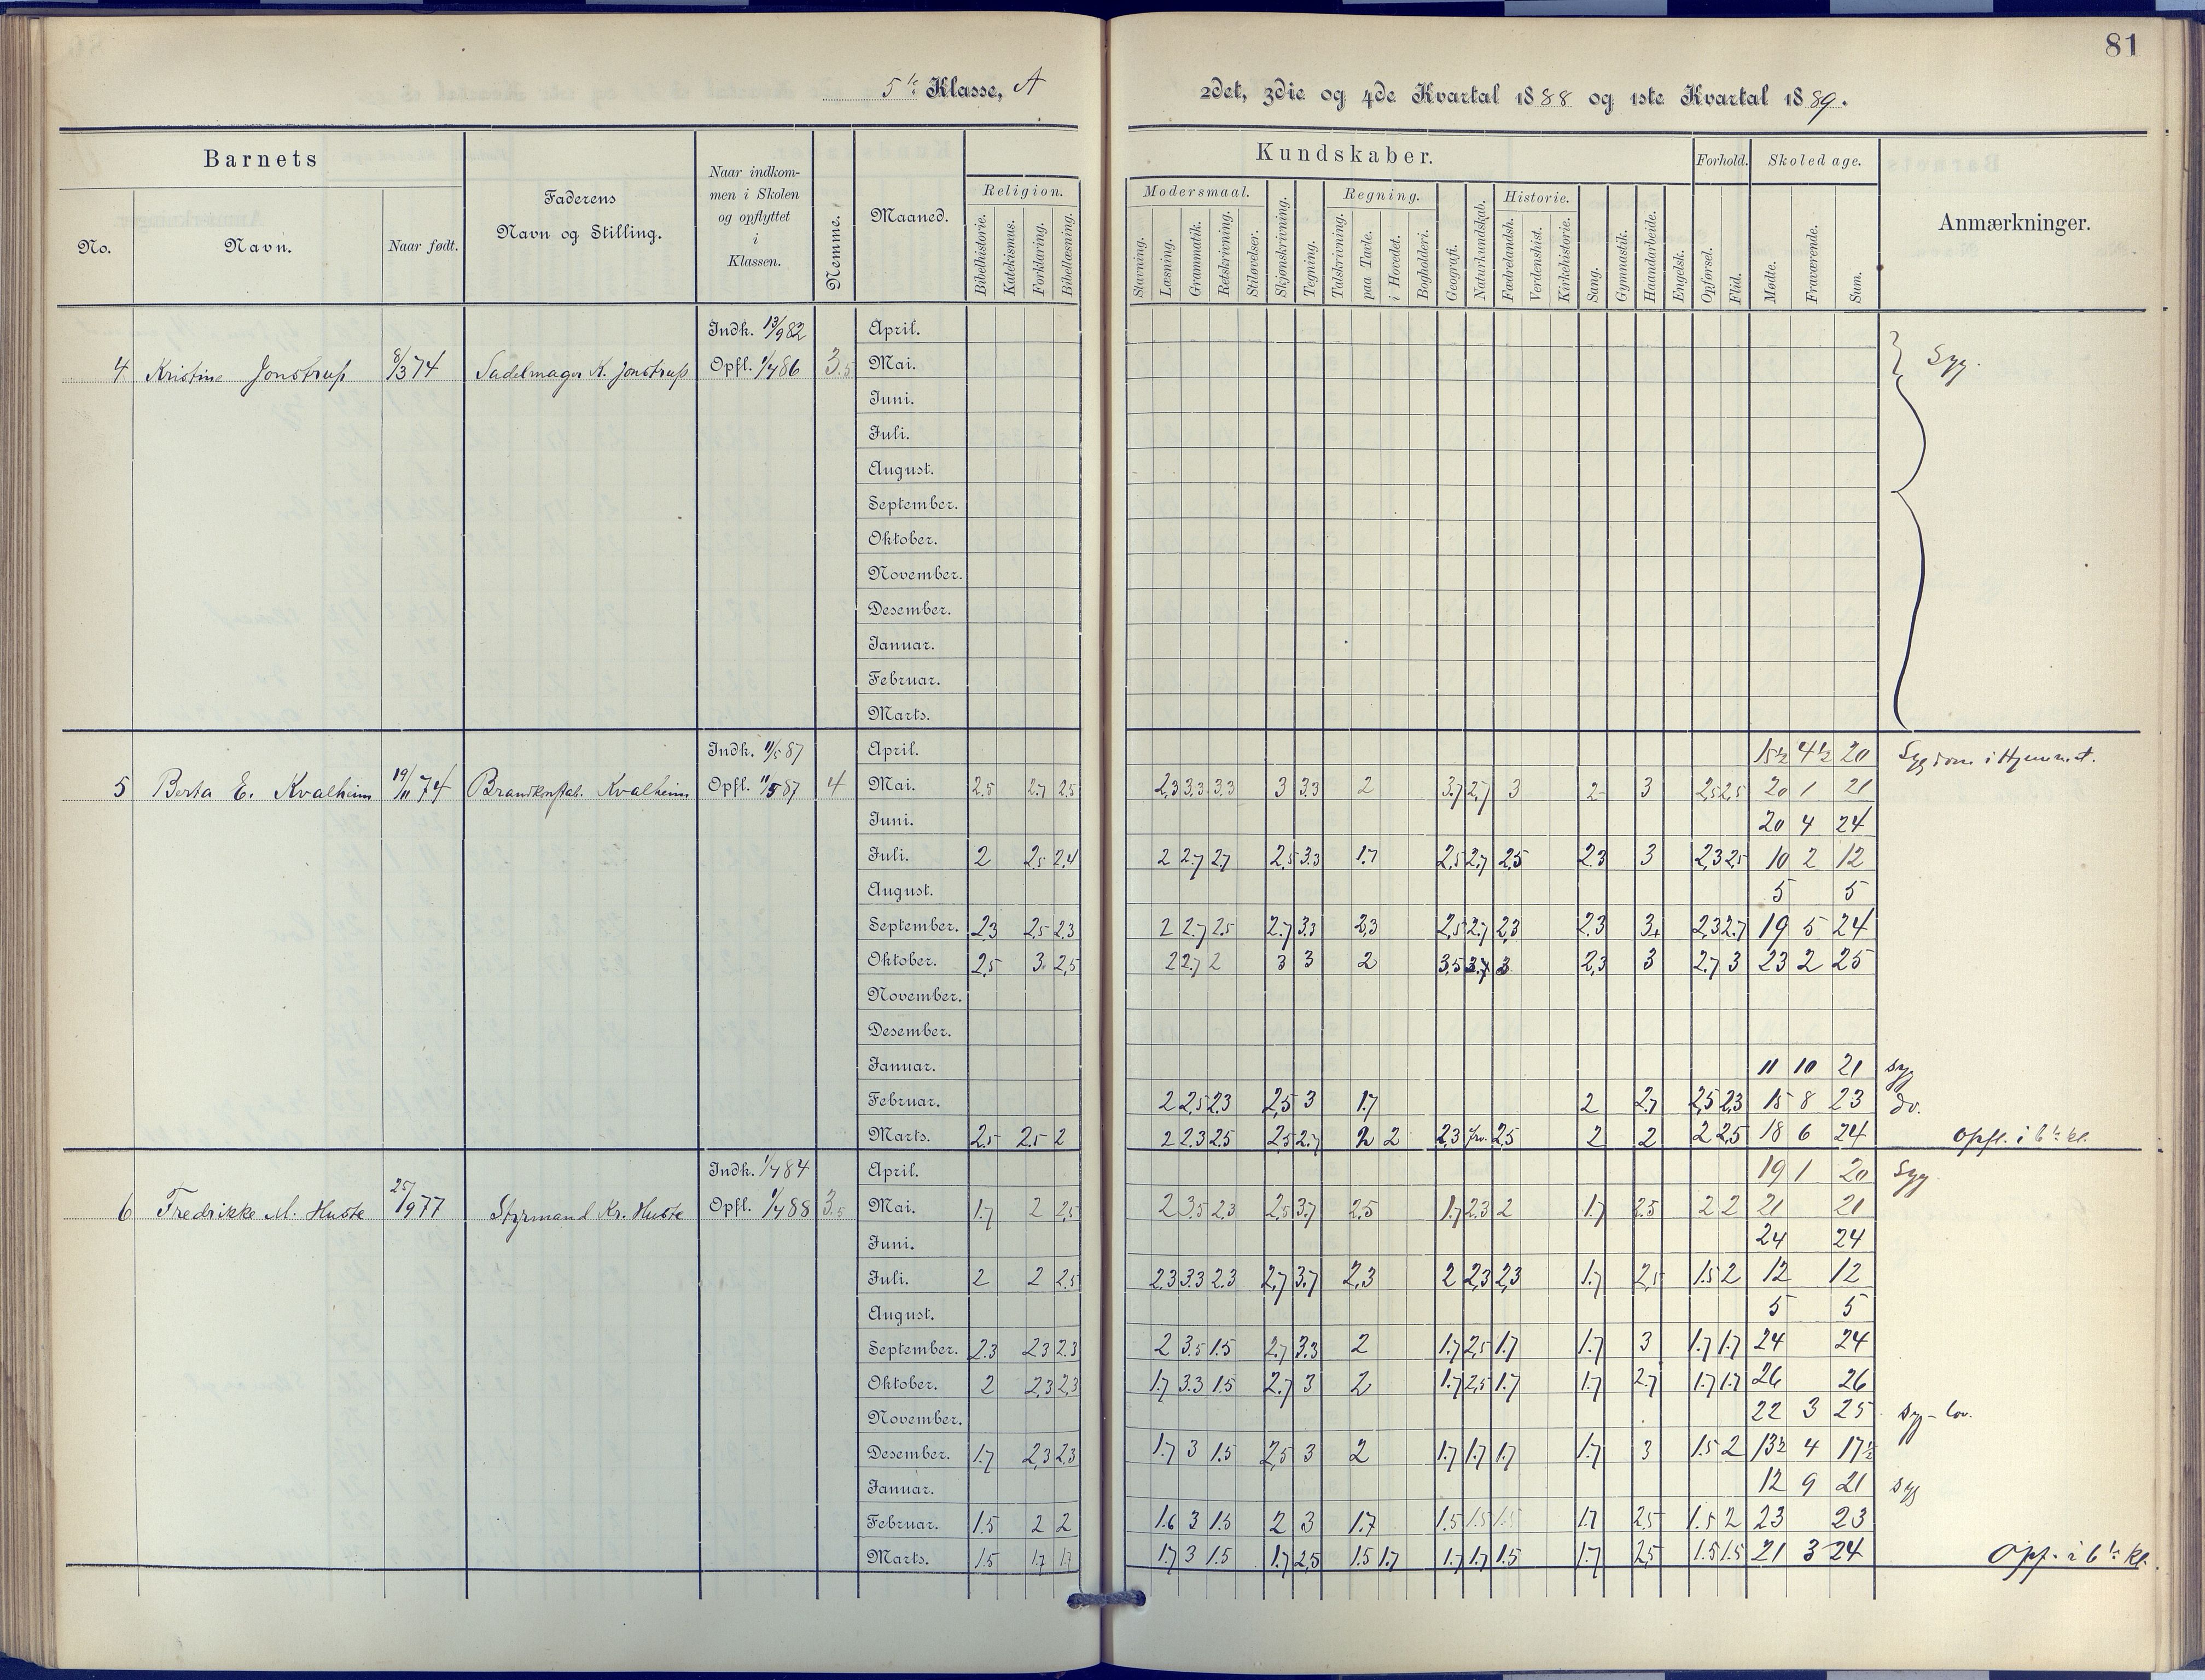 81
5te Klasse, A
2det, 3die og 4de Kvartal 1888 og 1ste Kvartal 1889.
Barnets
No.
Navn.
Naar født.
Faderens
Navn og Stilling.
Naar indkom-
men i Skolen
og opflyttet
i
Klassen.
Nemme.
Maaned.
Kundskaber.
Religion.
Bibelhistorie.
Katekismus.
Forklaring.
Bibellæsning.
Modersmaal.
Stavning.
Læsning.
Grammatik.
Retskrivning.
Stiløvelser.
Skjønskrivning.
Tegning.
Regning.
Talskrivning.
paa Tavle.
i Hovedet.
Bogholderi.
Geografi.
Naturkundskab.
Historie.
Fædrelandsh.
Verdenshist.
Kirkehistorie.
Sang.
Gymnastik.
Haandarbeide.
Engelsk.
Forhold.
Opførsel.
Flid.
Skoledage.
Mødte.
Fraværende.
Sum.
Anmærkninger.
Indk. 13/9 82 April.
4 Kristine Jonstrup 8/3 74 Sadelmager K. Jonstrup Opfl. 1/4 86 3.5 Mai. Syg.
Juni.
Juli.
August.
September.
Oktober.
November.
Desember.
Januar.
Februar.
Marts.
Indk. 11/5 87 April. 15½ 4½ 20 Sygdom i Hjemmet.
5 Berta E. Kvalheim 19/11 74 Brandkonstab. Kvalheim Opfl. 11/5 87 4 Mai. 2.5 2.7 2.5 2,3 3.3 3.3 3 3.3 2 3.7 2.7 3 2 3 2.5 2.5 20 1 21
Juni. 20 4 24
Juli. 2 2.5 2.4 2 2.7 2.7 2.5 3.3 1.7 2.5 2.7 2.5 2.3 3 2,3 2.5 10 2 12
August. 5 5
September. 2.3 2.5 2.3 2 2.7 2.5 2.7 3.3 2,3 2.5 2.7 2,3 2.3 3+ 2,3 2.7 19 5 24
Oktober. 2,5 3. 2,5 2 2.7 2 3 3 2 3,5 3.7 3 2,3 3 2.7 3 23 2 25
November.
Desember.
Januar. 11 10 21 syg
Februar. 2 2.5 2.3 2,5 3 1.7 2 2.7 2,5 2.3 15 8 23 do.
Marts. 2.5 2.5 2 2 2.3 2.5 2.5 2.7 2 2 2.3 frv. 2.5 2 2 2 2,5 18 6 24 Opfl. i 6te kl.
Indk. 1/4 84 April. 19 1 20 Syg
6 Fredrikke M. Huste 25/9 77 Styrmand Kr. Huste Opfl. 1/4 88 3.5 Mai. 1.7 2 2.5 2 3.5 2.3 2.5 3.7 2.5 1.7 2.3 2 1.7 2.5 2 2 21 21
Juni. 24 24
Juli. 2 2 2.5 2.3 3.3 2.3 2,7 3.7 2,3 2 2,3 2,3 1.7 2.5 1.5 2 12 12
August. 5 5
September. 2.3 2.3 2.3 2 3.5 1.5 2.7 3.3 2 1.7 2.5 1.7 1.7 3 1.7 1.7 24 24
Oktober. 2 2,3 2,3 1.7 3.3 1.5 2.7 3 2 1.7 2.5 1.7 1.7 2.7 1.7 1.7 26 26
November. 22 3 25 syg - lov.
Desember. 1.7 2,3 2.3 1.7 3 1.5 2,5 3 2 1.7 1.7 1.7 1.7 3 1.5 2 13½ 4 17½
Januar. 12 9 21 syg
Februar. 1.5 2 2 1.6 3 1.5 2 3 1.7 1.5 1.5 1.5 1.7 2.5 1.5 2 23 23
Marts. 1.5 1.7 1.7 1.7 3 1.5 1.7 2,5 1.5 1.7 1.7 1.7 1.5 1.7 2.5 1.5 1.5 21 3 24 Opf. i 6te kl.